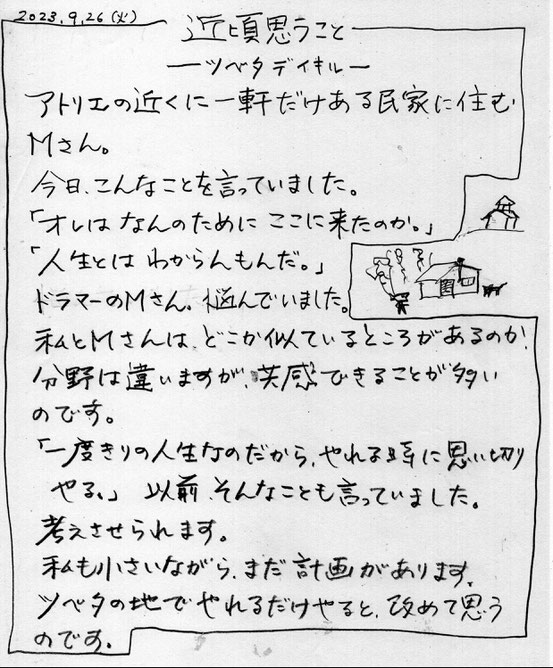 2023.9.26(火)
近頃思うこと
―ツベタデイキル―
アトリエの近くに一軒だけある民家に住む
Mさん。
今日、こんなことを言っていました。
「オレはなんのためにここに来たのか。」
「人生とはわからんもんだ。」
ドラマーのMさん、悩んでいました。
私とMさんは、どこか似ているところがあるのか、
分野は違いますが、共感できることが多い
のです。
「一度きりの人生なのだから、やれる時に思い切り
やる。」以前、そんなことも言っていました。
考えさせられます。
私も小さいながら、まだ計画があります。
ツベタの地でやれるだけやると、改めて思う
のです。